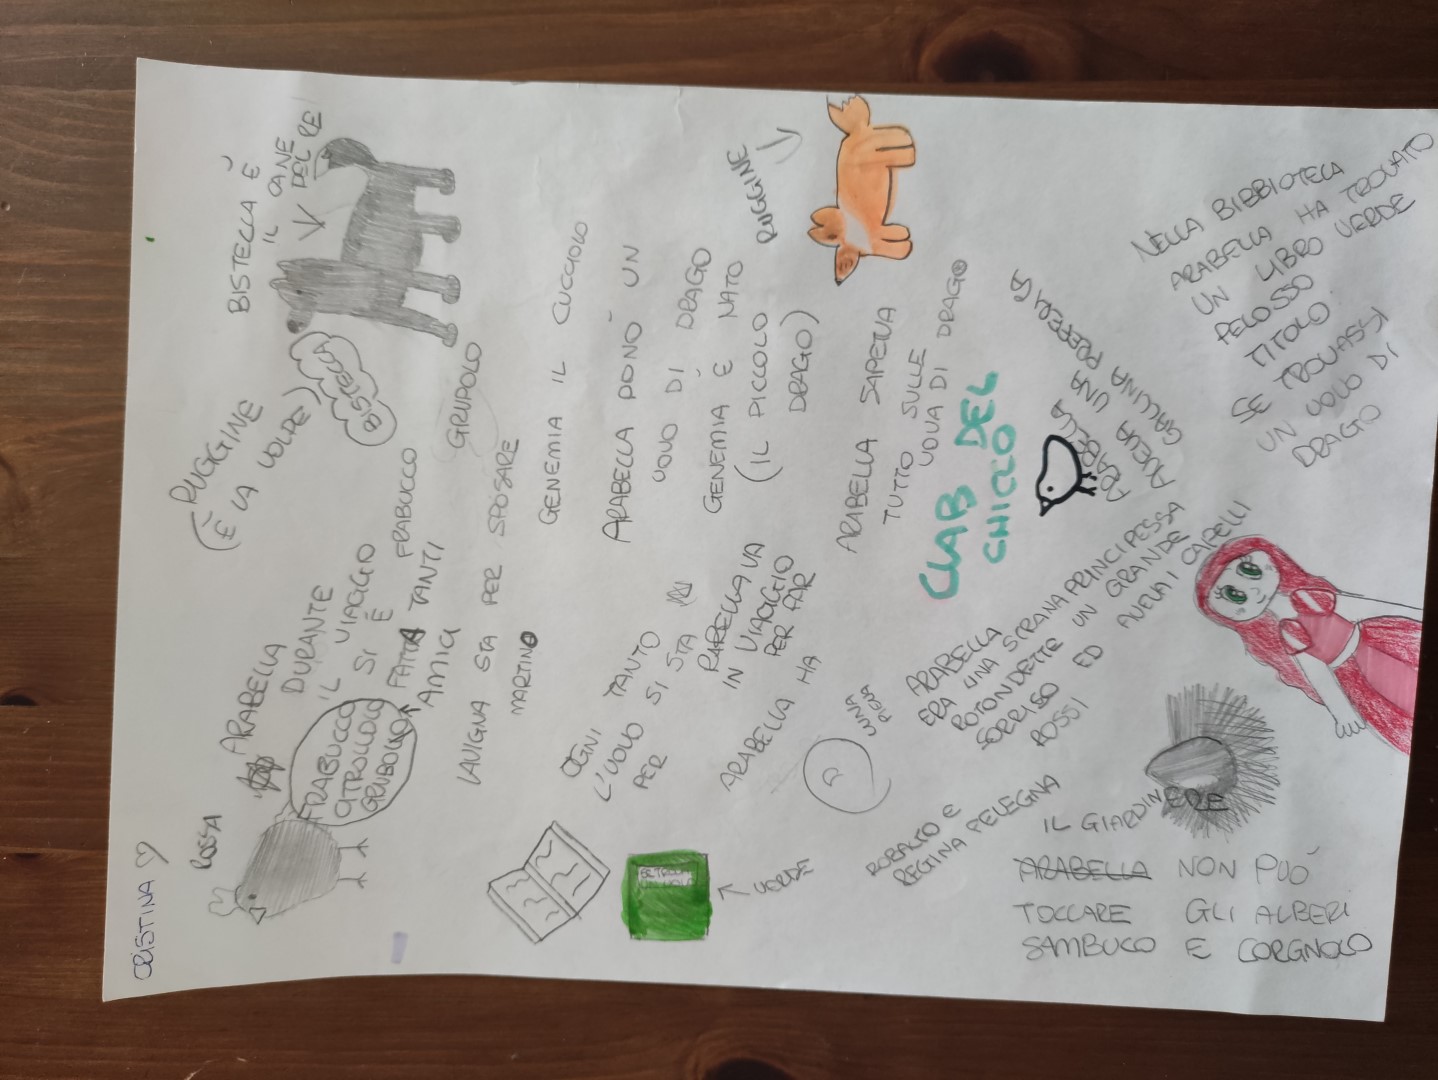 CRISTINA
ROSSA
ARABELLA
DURANTE
IL VIAGGIO
SI È
FATTA TANTI
AMICI
FRABUCCO
CITROLLOLO
GRUBOLLO
FRABUCCO
GRUPOLO
RUGGINE
(È LA VOLPE)
BISTECCA È
IL CANE
DEL RE
BISTECCA
LAVIGNA STA PER SPOSARE
MARTINO
GENEMIA IL CUCCIOLO
ARABELLA DONÒ UN
UOVO DI DRAGO
GENEMIA È NATO
(IL PICCOLO
DRAGO)
RUGGINE
OGNI TANTO
L'UOVO SI STA
PER
ARABELLA VA
IN VIAGGIO
PER FAR
ARABELLA HA
UNA
VERDE
ARABELLA SAPEVA
TUTTO SULLE
UOVA DI DRAGO
CLAB DEL
CHICCO
ARABELLA
AVEVA UNA
GALLINA PREFERITA
ARABELLA
ERA UNA STRANA PRINCIPESSA
ROTONDETTE UN GRANDE
SORRISO ED AVEVA I CAPELLI
ROSSI
NELLA BIBBIOTECA
ARABELLA HA TROVATO
UN LIBRO VERDE
PELOSSO
TITOLO
SE TROVASSI
UN UOVO DI
DRAGO
ROBALTO E
REGINA PELEGNA
IL GIARDINIERE
ARABELLA NON PUÒ
TOCCARE GLI ALBERI
SAMBUCO E CORGNOLO